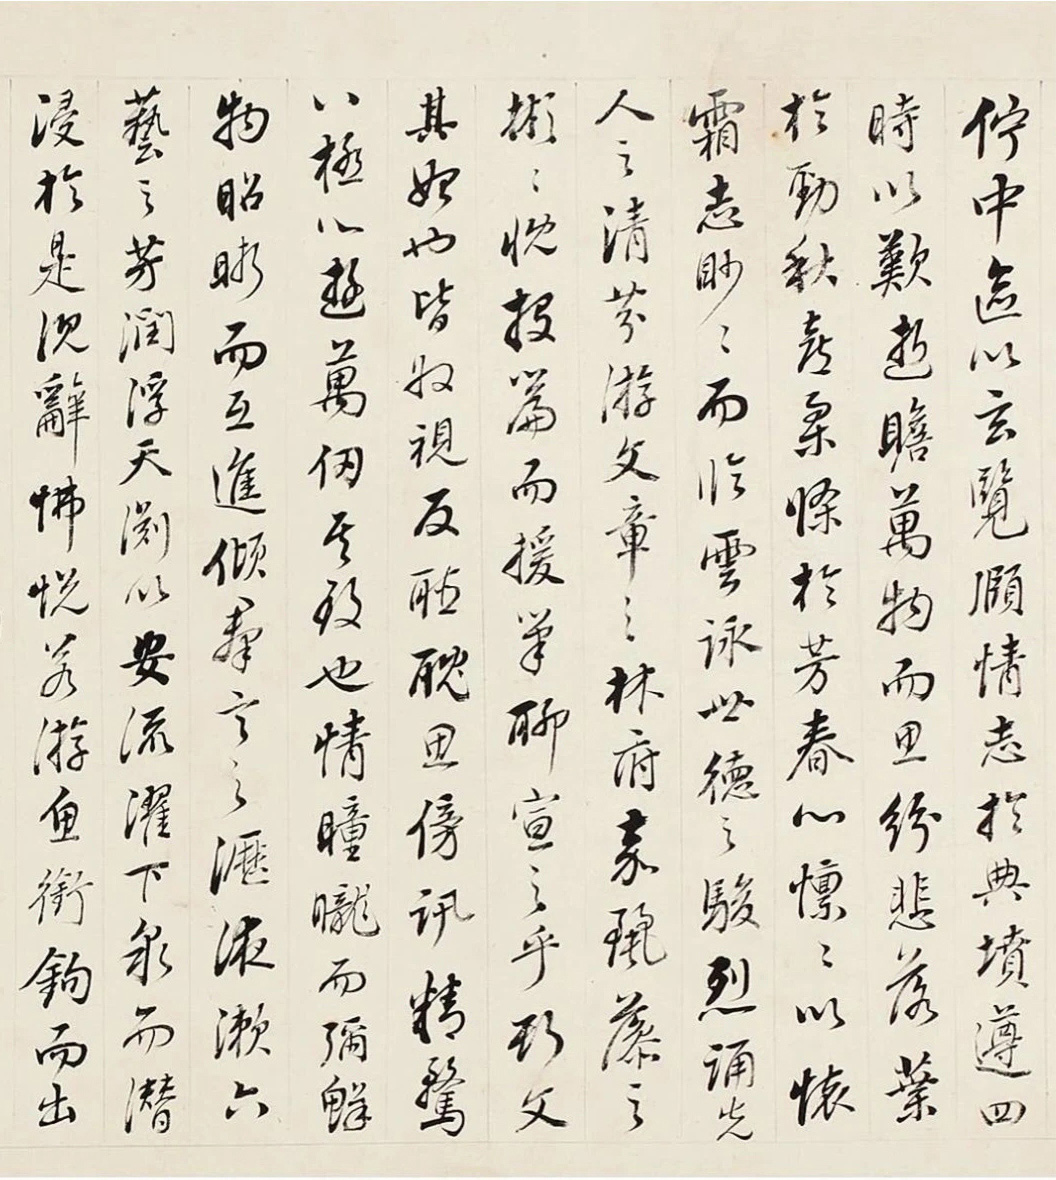 佇中區以玄覽頤情志於典墳遵四
時以歎逝瞻萬物而思紛悲落葉
於勁秋喜柔條於芳春心懍〻以懷
霜志眇〻而臨雲詠世德之駿烈誦先
人之清芬游文章之林府嘉麗藻之
彬〻慨投篇而援筆聊宣之乎斯文
其始也皆收視反聽耽思傍訊精騖
八極心遊萬仞其致也情曈曨而彌鮮
物昭晣而互進傾羣言之瀝液漱六
藝之芳潤浮天淵以安流濯下泉而潛
浸於是沈辭怫悅若游魚銜鉤而出